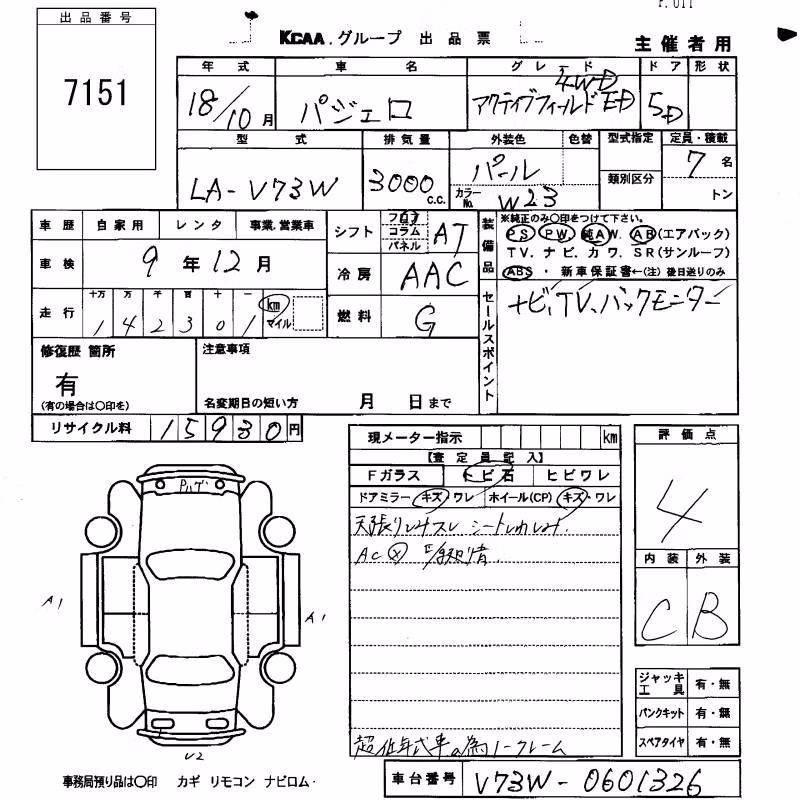 出品番号
7151
KCAA.グループ 出品票
主催者用
年式 車名 グレード ドア 形状
18/10月 パジェロ アクティブフィールドED 4WD 5D
型式 排気量 外装色 色替 型式指定 定員・積載
LA-V73W 3000 c.c. パール 7名
カラーNo. W23 類別区分 トン
車歴 自家用 レンタ 事業.営業車
シフト フロア コラム パネル AT
装備品 ※純正のみ〇印をつけて下さい。
PS PW. 純AW. AB(エアバック)
TV. ナビ. カワ. SR(サンルーフ)
ABS・ 新車保証書←(注)後日送りのみ
車検 9年12月
冷房 AAC
走行 十万 万 千 百 十 一
142301 km マイル
燃料 G
セールスポイント
ナビ、TV、バックモニター
修復歴 箇所
有
(有の場合は〇印を)
注意事項
名変期日の短い方 月 日まで
リサイクル料 15930円
現メーター指示 km
【査定員記入】
Fガラス トビ石 ヒビワレ
ドアミラー キズ・ワレ ホイール(CP) キズ・ワレ
天張りシミスレ シートしわシミ.
AC
評価点
4
内装 外装
C B
A1
A1
V2
ジャッキ工具 有・無
パンクキット 有・無
スペアタイヤ 有・無
超低年式車の為ノークレーム
事務局預り品は〇印 カギ リモコン ナビロム・
車台番号 V73W-0601326